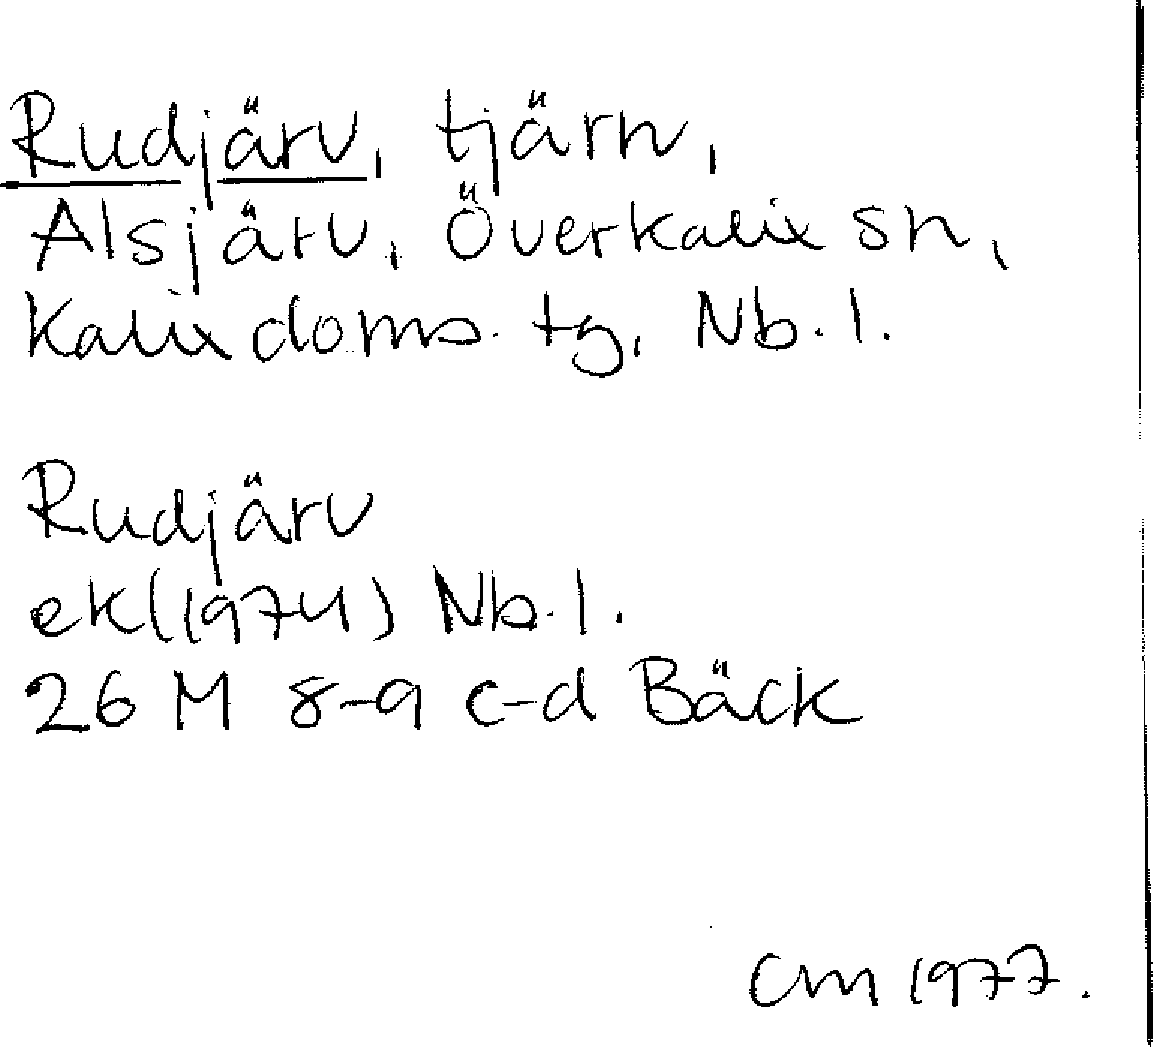 Rudjärv, tjärn,
Alsjärv, Överkalix sn,
Kalix doms. tg, Nb. l.
Rudjärv
ek (1974) Nb. l.
26 M 8-9 c-d Bäck
CM 1977.